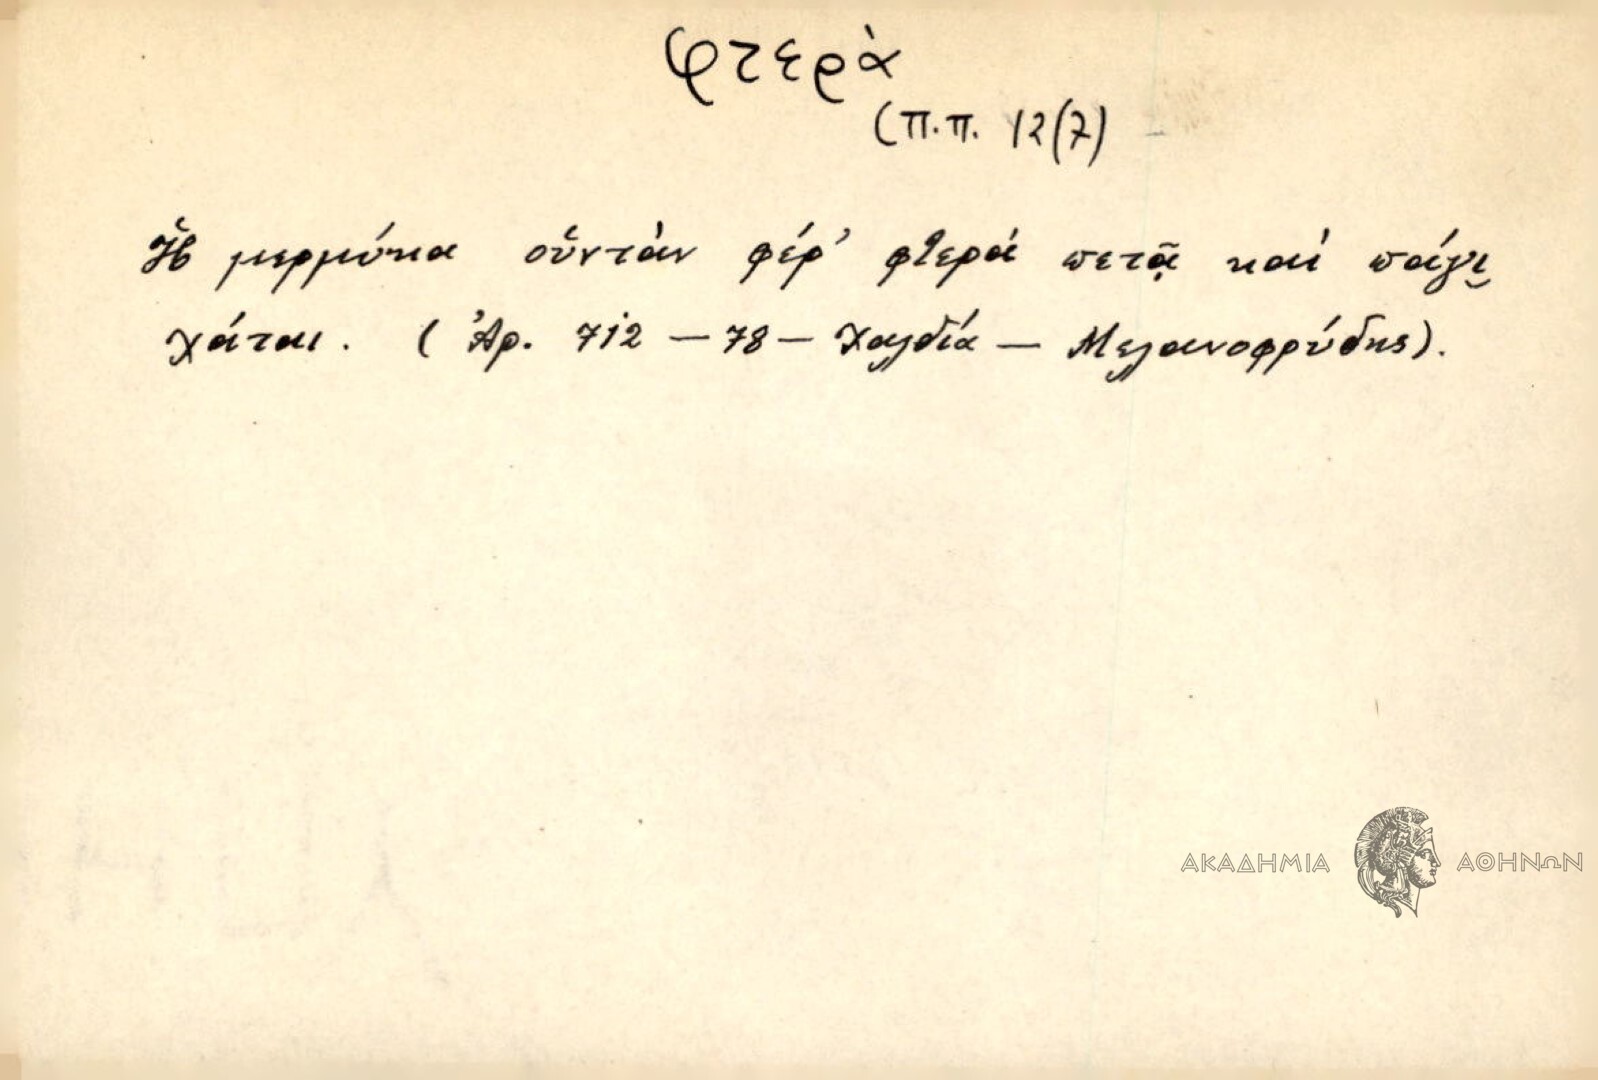 φτερὰ
(π.π. 12(7)
Ἡ μερμύκα οὕνταν φέρ' φτερά πετᾷ καί πάγι̮
χάται. (Ἀρ. 712 – 78 – Χαλδία – Μελανοφρύδης).
ΑΚΑΔΗΜΙΑ ΑΘΗΝΩΝ